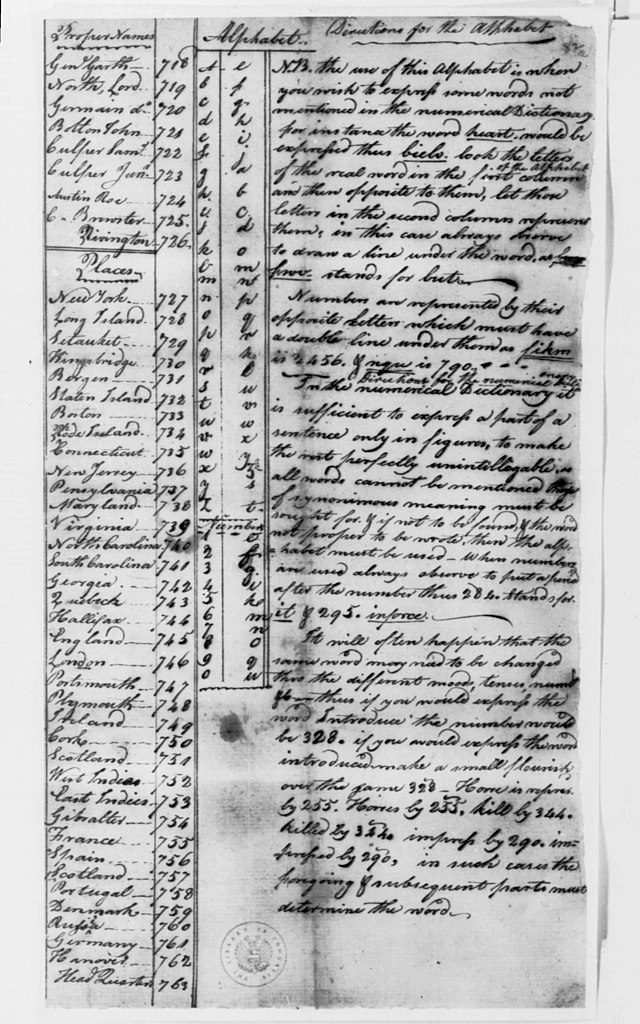 Proper Names
Gen.l Garth 718
North Lord 719
Germain do. 720
Bolton John 721
Culper Saml. 722
Culper Junr. 723
Austin Roe 724
C. Brewster 725.
Rivington 726.
Places
New York 727
Long Island 728
Setauket 729
Kingsbridge 730
Bergen 731
Staten Island 732
Boston 733
Rode Island 734
Connecticut 735
New Jersey 736
Pensylvania 737
Maryland 738
Virginia 739
North Carolina 740
South Carolina 741
Georgia 742
Quebeck 743
Hallifax 744
England 745
London 746
Portsmouth 747
Plymouth 748
Ireland 749
Cork 750
Scotland 751
West Indies 752
East Indies 753
Gibralter 754
France 755
Spain 756
Scotland 757
Portugal 758
Denmark 759
Russia 760
Germany 761
Hanover 762
Head Quarters 763
Alphabet
a e
b f
c g
d h
e i
f j
g a
h b
i c
j d
k o
l m
m n
n p
o q
p r
q k
r l
s u
t v
u w
v x
w y
x z
y s
z t
Numbers
1 e
2 f
3 g
4 i
5 k
6 m
7 n
8 o
9 q
0 u
Directions for the Alphabet
N.B. the use of this Alphabet is when
you wish to express some words not
mentioned in the numerical Dictionary
for instance the word heart. would be
expressed thus bielv. look the letters
of the real word in the first column of the Alphabet
and then opposite to them, let those
letters in the second column represent
them, in this case always observe
to draw a line under the word, as
fwv. stands for but
Numbers are represented by their
opposite letters which must have
a double line under them as fikm
is 2456. & nqu is 790.
Directions for the numerical
In the numerical Dictionary it
is sufficient to express a part of a
sentence only in figures, to make
the rest perfectly unintillegable, as
all words cannot be mentioned those
of synonimous meaning must be
sought for. & if not to be found, & the word
not proper to be wrote, then the alp-
habet must be used — When numbers
are used always observe to put a period
after the number thus 284. stands for
it & 295. inforce.
It will often happen that the
same word may need to be changed
thro the different moods, tenses, numb
thus if you would express the
word introduce the number would
be 328. if you would express the word
introduced make a small flourish
over the same 328 — Horse is repres
by 255. Horses by 255. kill by 344.
killed by 344. impress by 290. im-
pressed by 290, in such cases the
foregoing & subsequent parts must
determine the word.